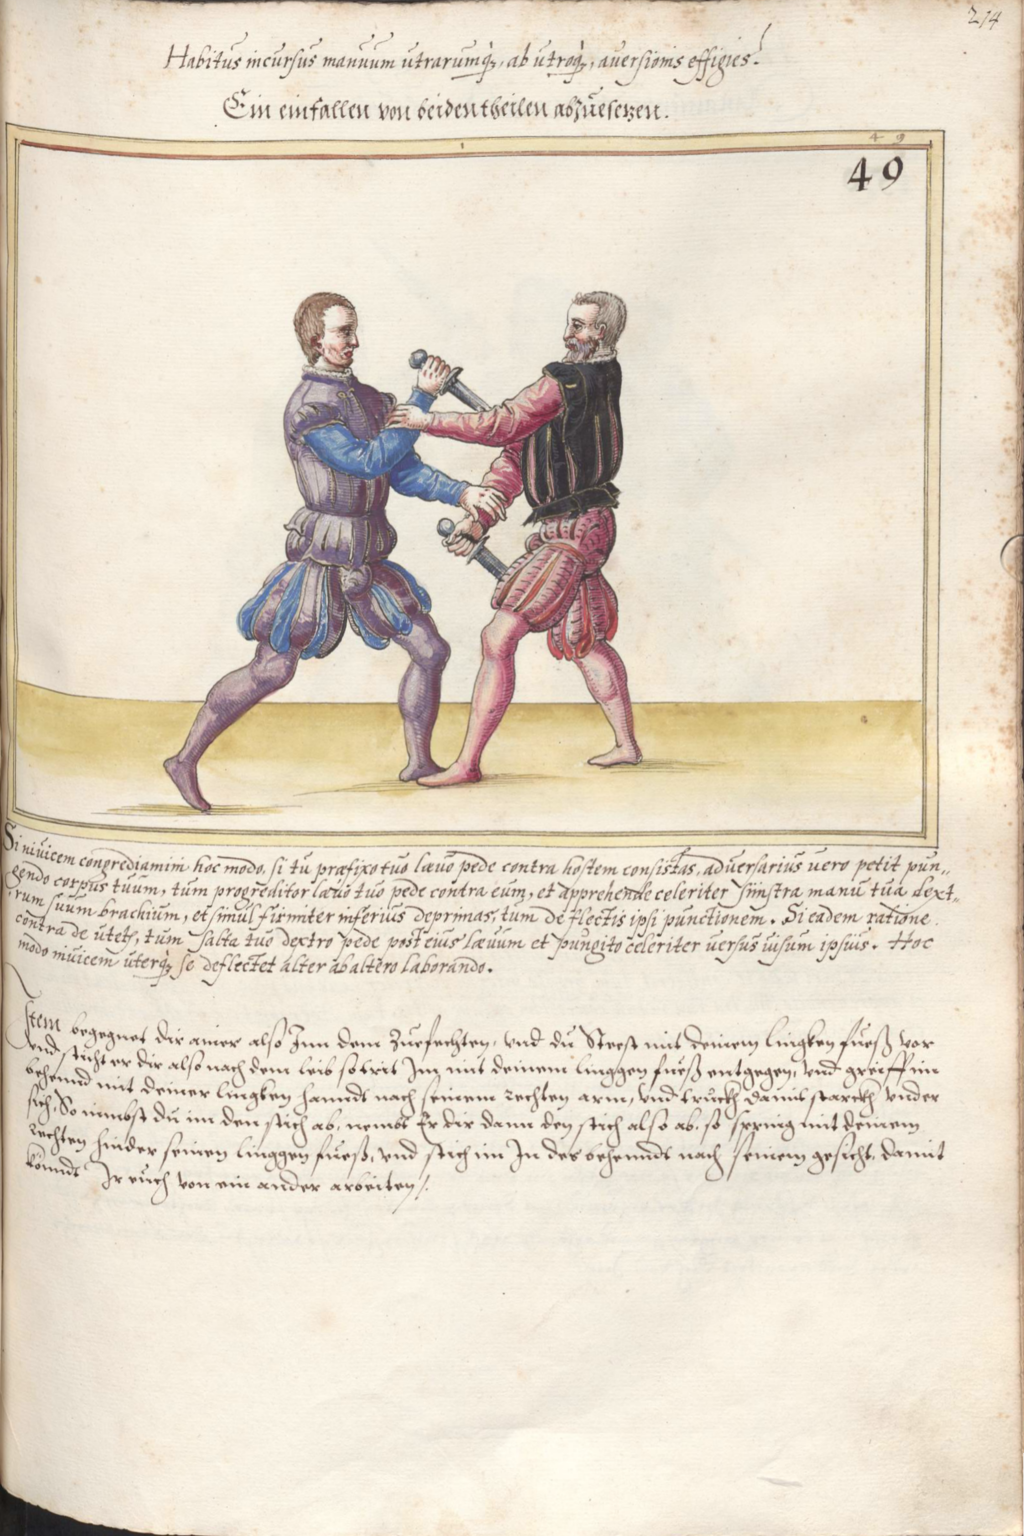 214
Habitus incursus manuum utrarumq́ꝫ, ab utroq́ꝫ, aversionis effigies.
Ein einfallen von beiden theilen abzuesetzen.
4 9
49
Si niuicem congrediamini hoc modo, si tu præfixo tuo lævo pede contra hostem consistas, adversarius vero petit pun„
gendo corpus tuum, tum progreditor lævo tuo pede contra eum, et apprehende celeriter sinistra manu tua dext„
rum suum brachium, et simul firmiter inferius deprimas, tum deflectis ipsi punctionem. Si eadem ratione
contra de utet, tum salta tuo dextro pede post eius lævum et pungito celeriter versus visum ipsius. Hoc
modo niuicem uterq́ꝫ se deflectet alter ab altero laborando.
Item begegnet dir ainer also Inn dem Zuefechten, vnd du Steest mit deinem lingken fueß vor
vnd sticht er dir also nach dem leib so trit Im mit deinem linggen fueß entgegen, vnd greiff im
behennd mit deiner lingken hanndt nach seinem rechten arm, vnd truckh damit starckh vnder
sich, So nimbst du im den stich ab, nembt Er dir dann den stich also ab, so spring mit deinem
rechten hinder seinen linggen fueß, vnd stich im In des behenndt nach seinem gesicht, damit
könndt Ir euch von ein ander arbeiten /.